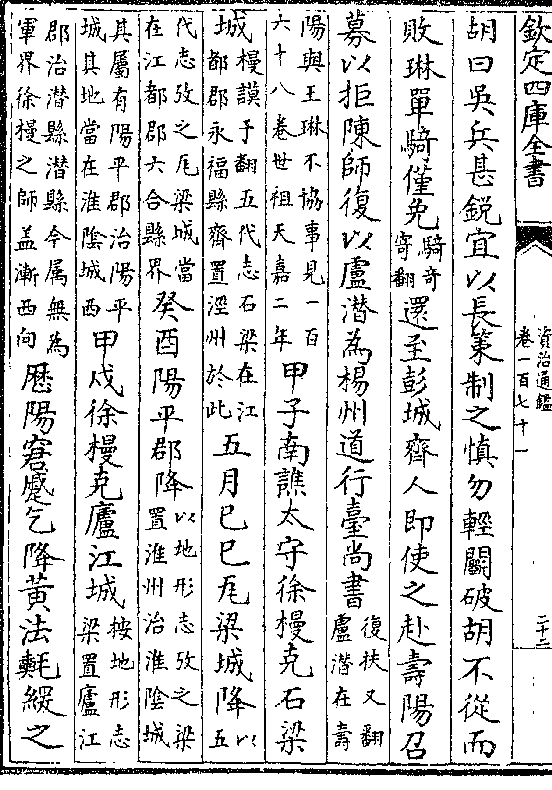 欽定四庫全書
資治通鑑
卷一百七十一
二十二
胡曰吳兵甚鋭宜以長策制之慎勿輕鬭破胡不從而
敗琳單騎僅免騎奇寄翻還至彭城齊人即使之赴壽陽召
募以拒陳師復以盧潛為楊州道行臺尚書復扶又翻盧潛在壽
陽與王琳不協事見一百六十八卷世祖天嘉二年甲子南譙太守徐槾克石梁
城槾謨于翻五代志石梁在江都郡永福縣齊置涇州於此五月己巳瓦梁城降以五
代志攷之瓦梁城當在江都郡六合縣界癸酉陽平郡降以地形志攷之梁置淮州治淮陰城
其屬有陽平郡治陽平城其地當在淮陰城西甲戍徐槾克廬江城按地形志梁置廬江
郡治潛縣潛縣今属無為軍界徐槾之師盖漸西向歴陽窘蹙乞降黄法𣰰緩之